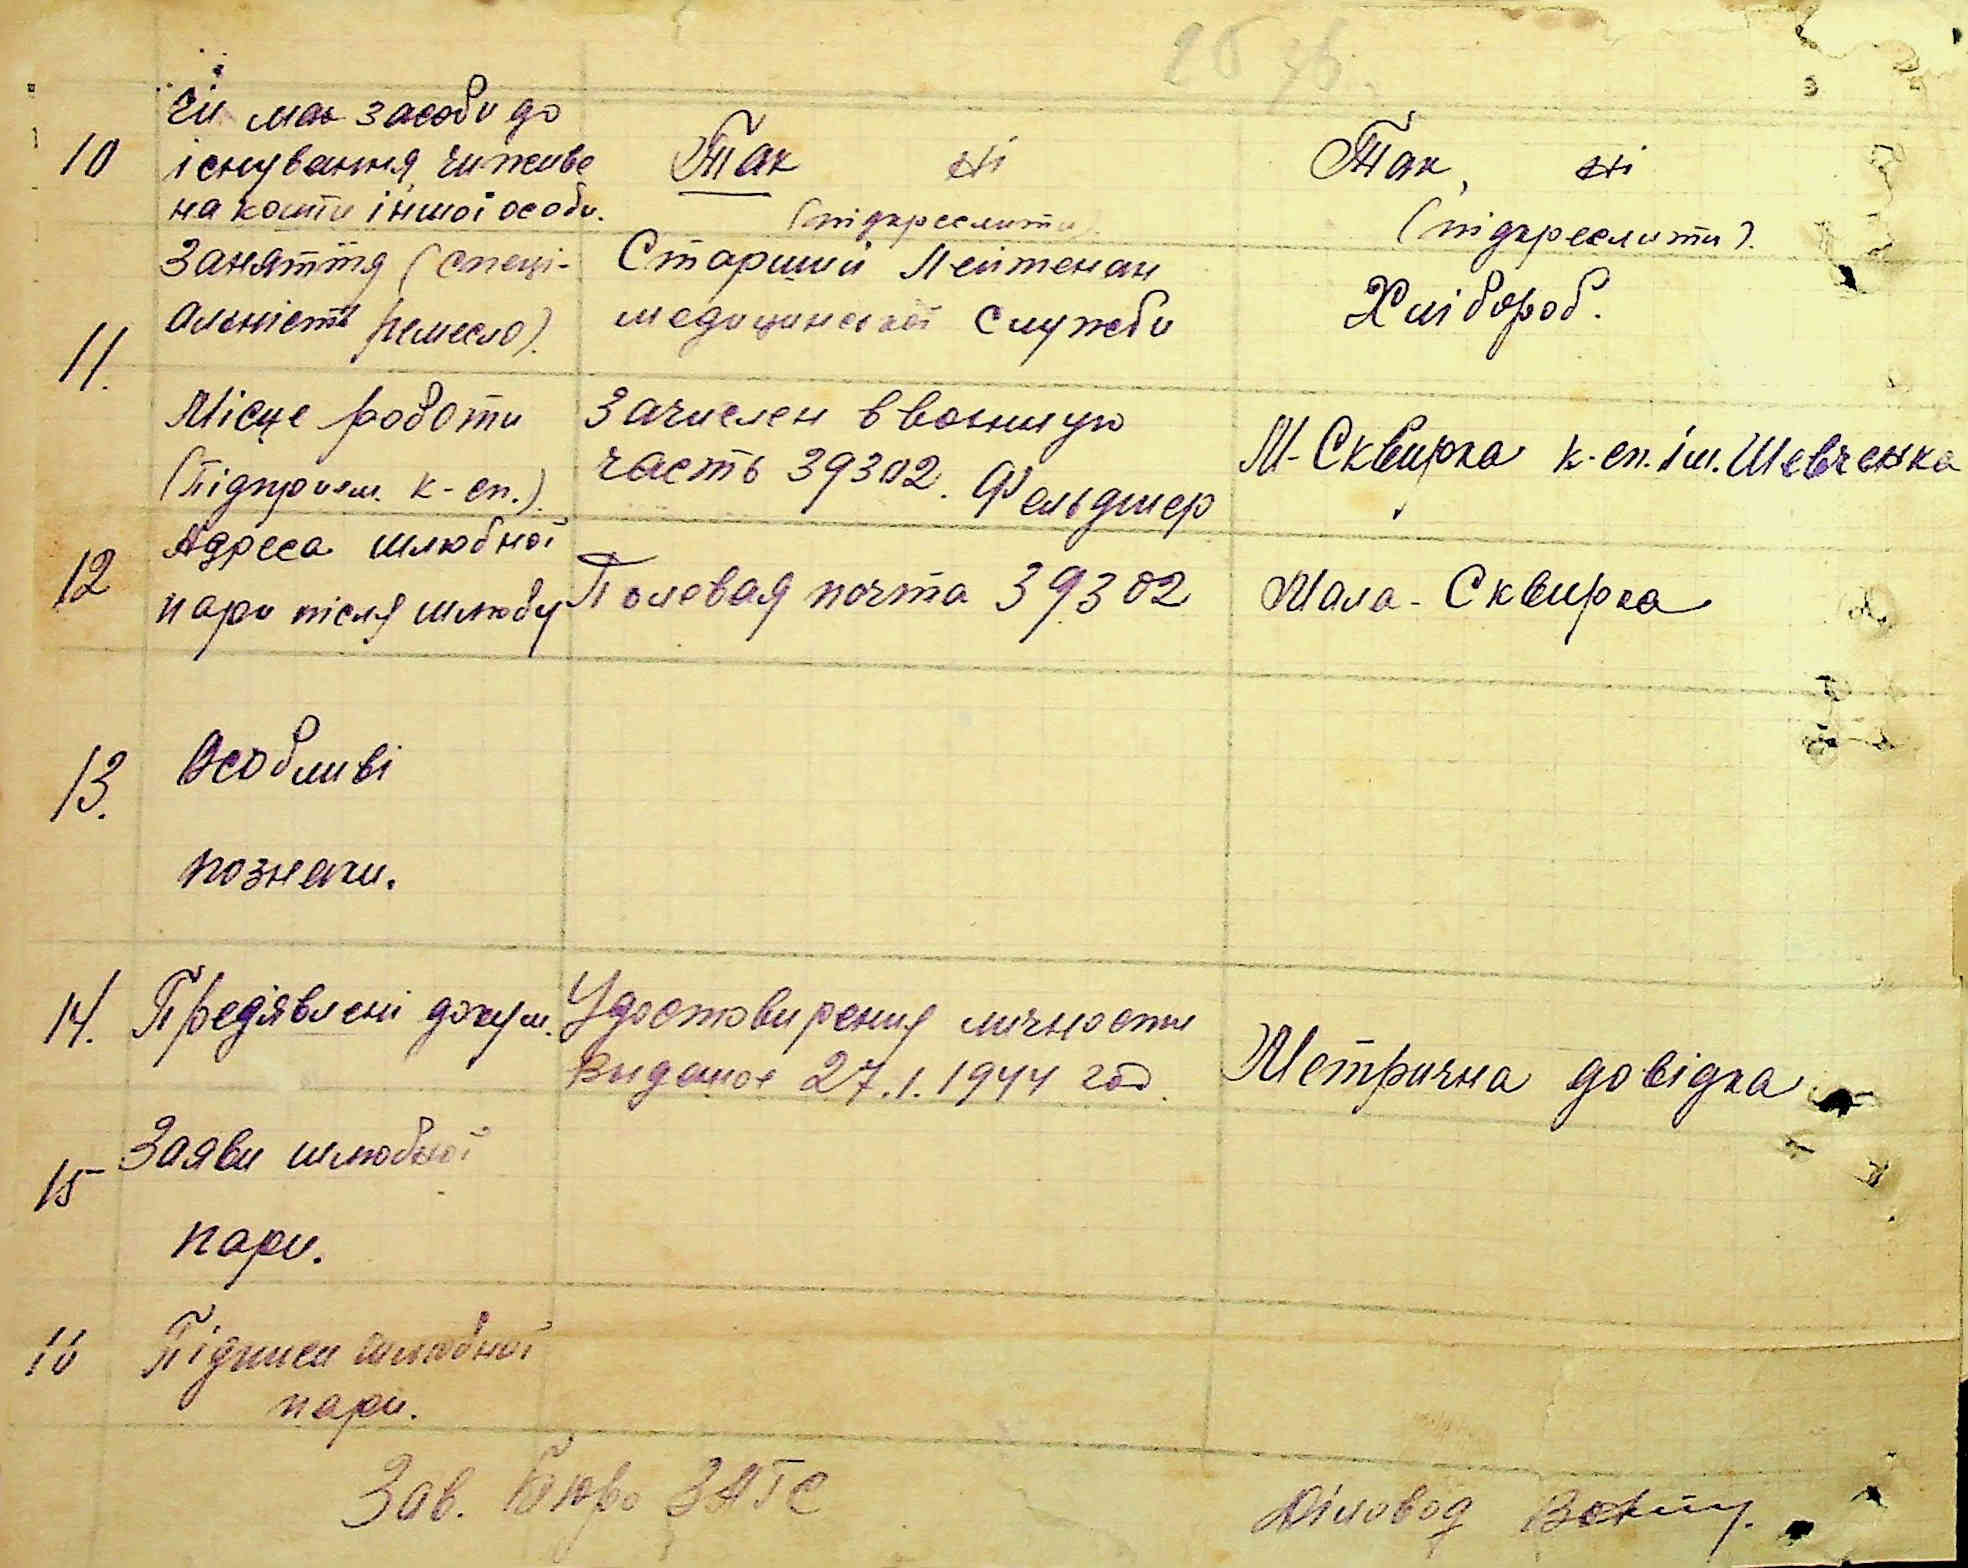 10 Чи має засоби до
існування, чи живе
на кошти іншої особи.
Так ні
(підкреслити)
Так, ні
(підкреслити).
11. Заняття (спеці-
альність ремесло).
Старший Лейтенан
медицинської служби
Хлібороб.
Місце роботи
(підприєм. к-сп.)
Зачислен в воинную
часть 39302. Фельдшер
М-Сквирка к-сп. ім. Шевченка
12 Адреса шлюбної
пари після шлюбу
Полевая почта 39302
Мала-Сквирка
13. Особливі
познаки.
14. Предіявлені докум.
Удостовирения личности
выданое 27.1.1944 год.
Метрична довідка
15 Заяви шлюбної
пари.
16 Підписи шлюбної
пари.
Зав. Бюро ЗАГС
Діловод